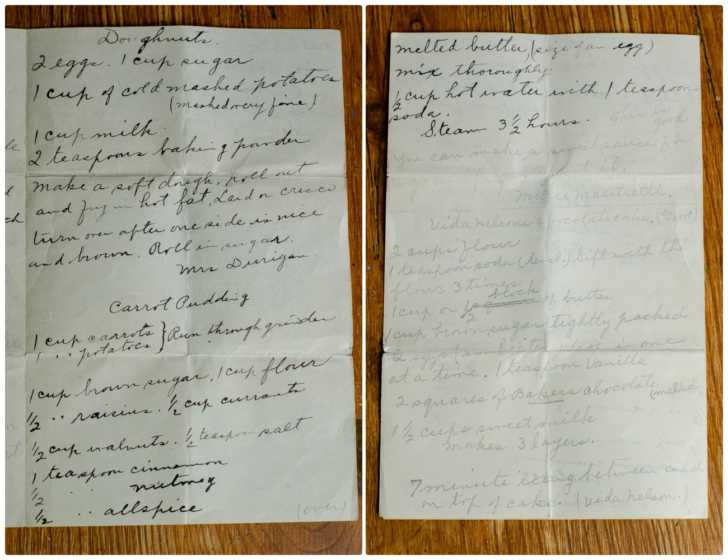 Doughnuts.
2 eggs. 1 cup sugar
1 cup of cold mashed potatoes
(mashed very fine)
1 cup milk.
2 teaspoons baking powder
make a soft dough, roll out
and fry in hot fat, Lard or crisco
turn over after one side is nice
and brown. Roll in sugar.
Mrs Durigan
Carrot Pudding
1 cup carrots } Run through grinder
1 .. potatoes }
1 cup brown sugar. 1 cup flour
1/2 .. raisins. 1/2 cup currants
1/2 cup walnuts. 1/2 teaspoon salt
1 teaspoon cinnamon
1/2 .. nutmeg
1/2 .. allspice
(over)
melted butter (size of an egg)
mix thoroughly
1/2 cup hot water with 1 teaspoon
soda.
Steam 3 1/2 hours.
You can make a sauce for
Vida Nelson's chocolate cake.
2 cups flour
1 teaspoon soda (level) Sift with the
flour 3 times
1 cup or stock of butter
1 cup brown sugar tightly packed
2 eggs one
at a time. 1 teaspoon vanilla
2 squares of Bakers chocolate
(melted
1 1/2 cups sweet milk
makes 3 layers.
7 minute icing between and
on top of cake. (Vida Nelson.)